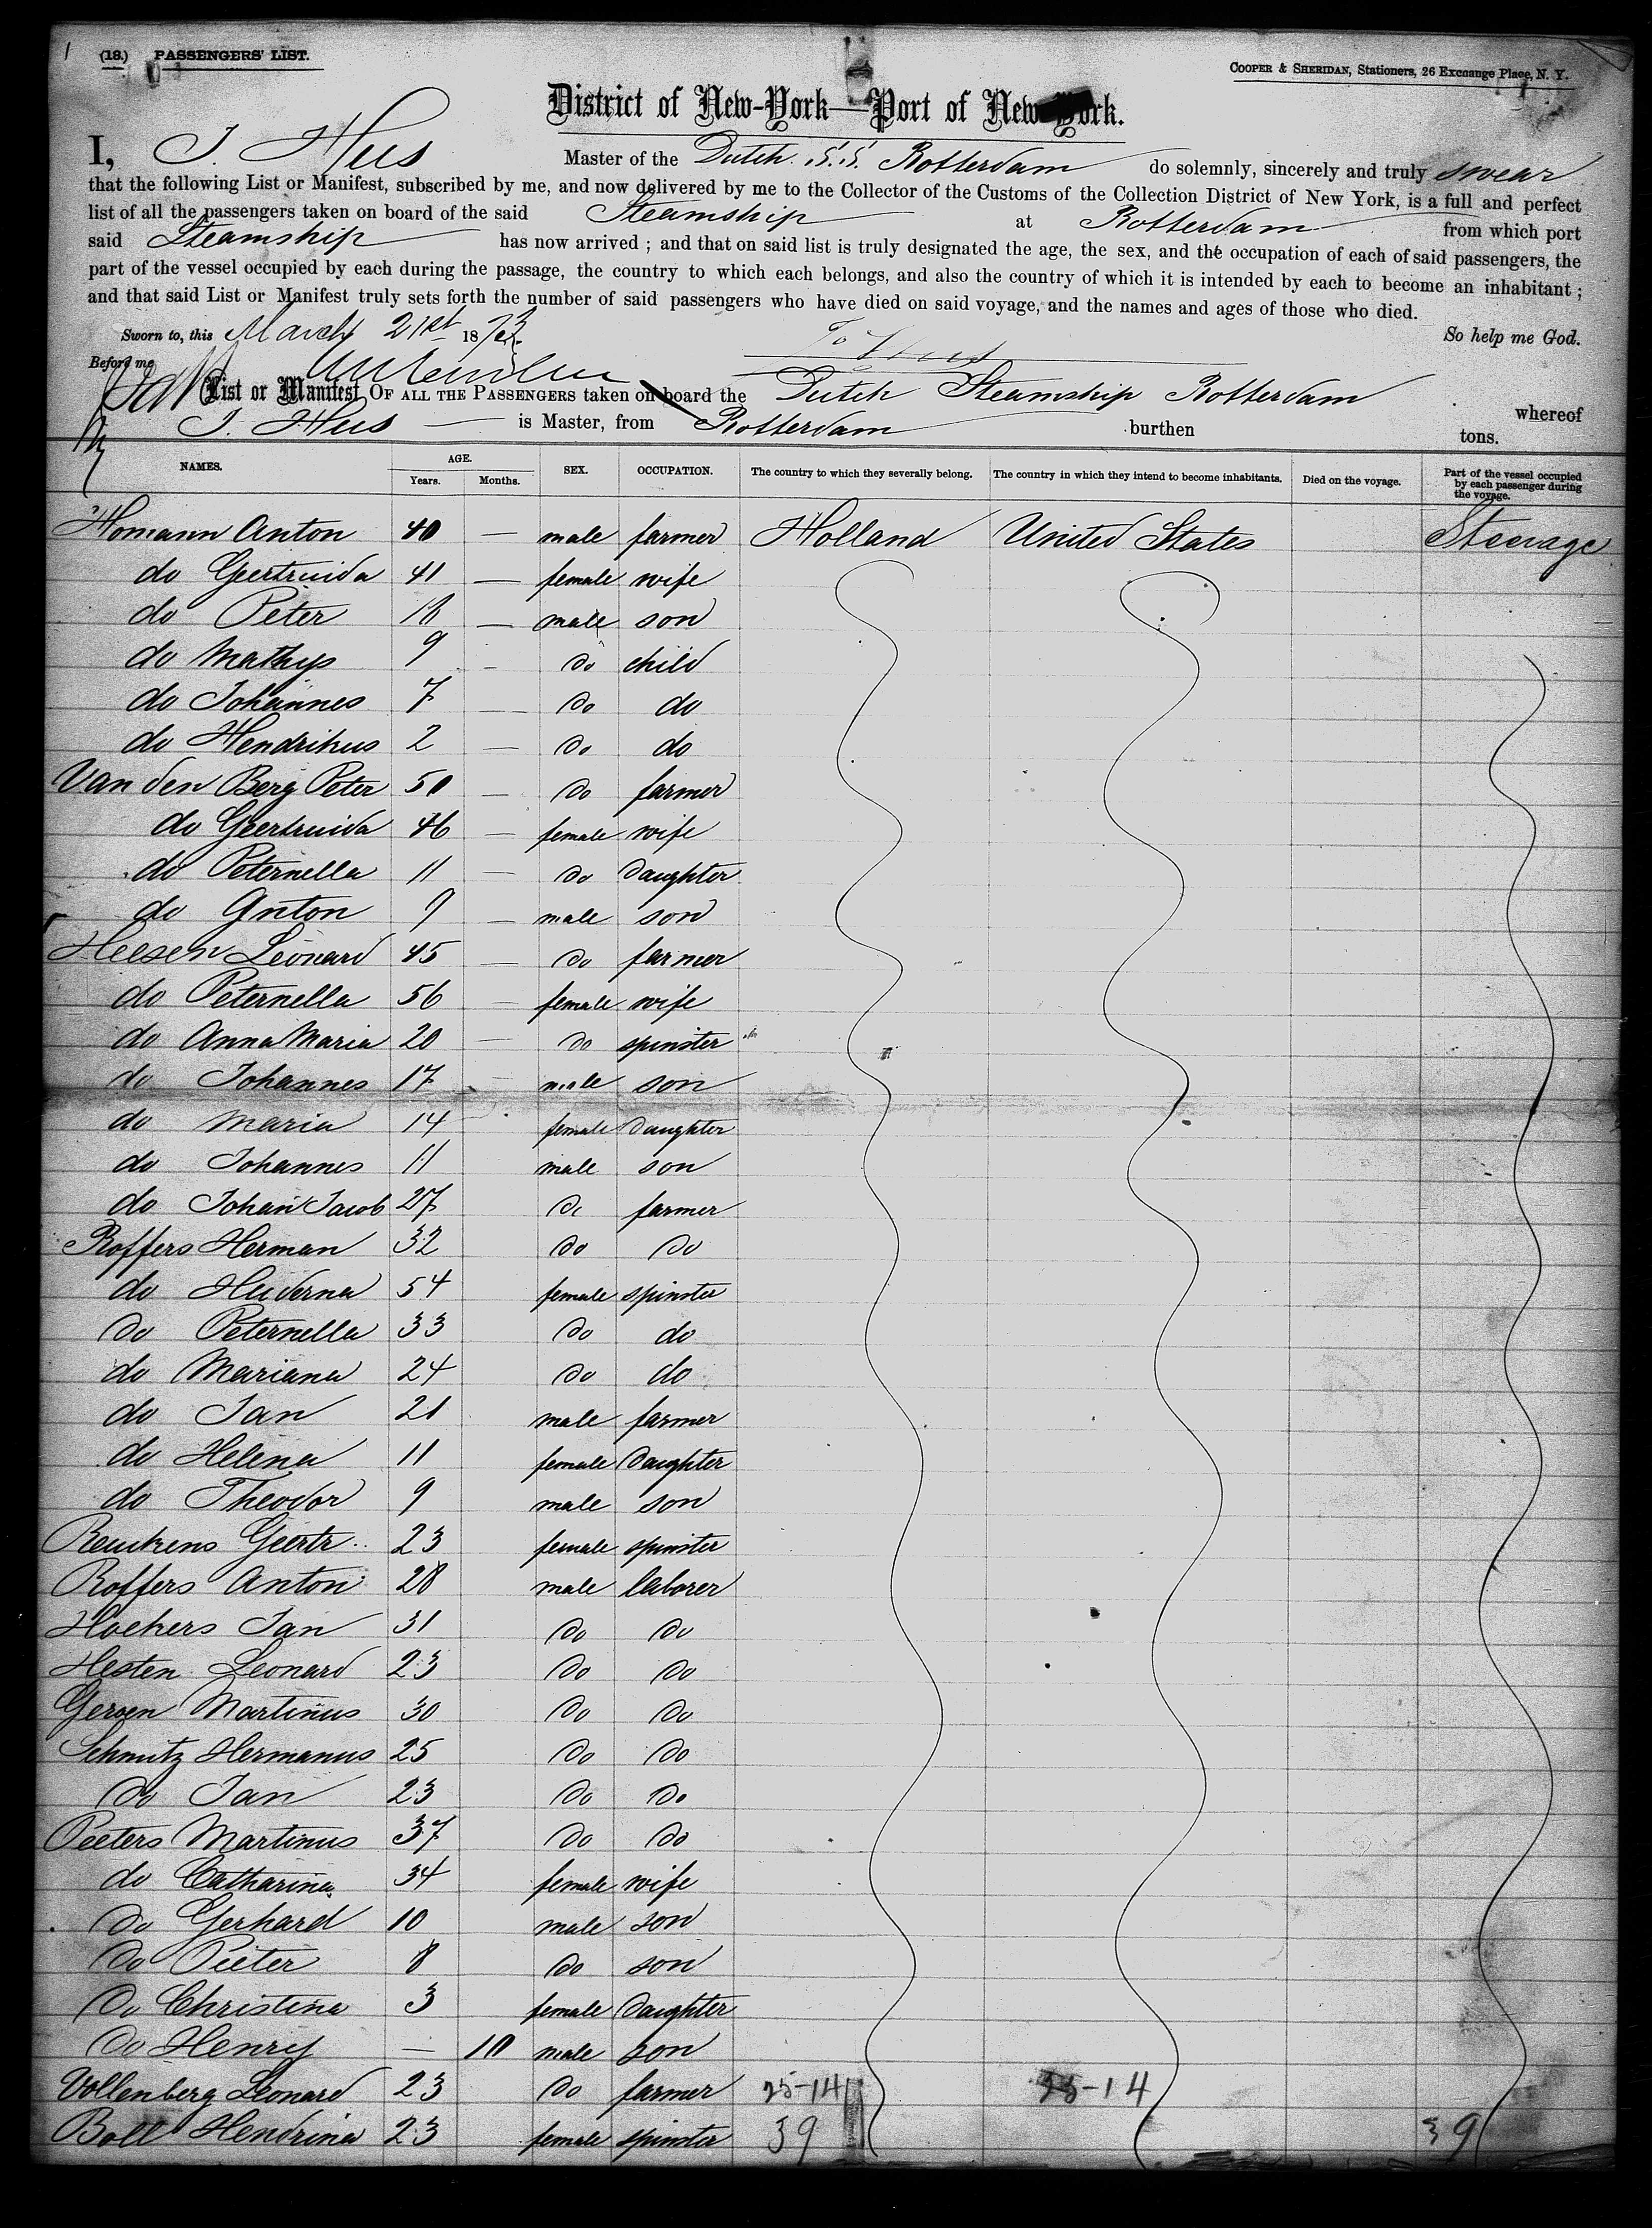 1 (18.) PASSENGERS' LIST.
COOPER & SHERIDAN, Stationers, 26 Exchange Place, N. Y.
District of New-York—Port of New York.
I, J. Hus Master of the Dutch S.S. Rotterdam do solemnly, sincerely and truly swear
that the following List or Manifest, subscribed by me, and now delivered by me to the Collector of the Customs of the Collection District of New York, is a full and perfect
list of all the passengers taken on board of the said Steamship at Rotterdam from which port
said Steamship has now arrived ; and that on said list is truly designated the age, the sex, and the occupation of each of said passengers, the
part of the vessel occupied by each during the passage, the country to which each belongs, and also the country of which it is intended by each to become an inhabitant ;
and that said List or Manifest truly sets forth the number of said passengers who have died on said voyage, and the names and ages of those who died.
Sworn to, this March 21st 1873 So help me God.
Before me
List or Manifest OF ALL THE PASSENGERS taken on board the Dutch Steamship Rotterdam whereof
J. Hus is Master, from Rotterdam burthen tons.
NAMES. AGE. Years. Months. SEX. OCCUPATION. The country to which they severally belong. The country in which they intend to become inhabitants. Died on the voyage. Part of the vessel occupied by each passenger during the voyage.
Homann Anton 40 — male farmer Holland United States Steerage
do Geertruida 41 — female wife
do Peter 18 — male son
do Mathys 9 — do child
do Johannes 7 — do do
do Hendrikus 2 — do do
Van den Berg Peter 50 — do farmer
do Geertruida 46 — female wife
do Peternella 11 — do daughter
do Anton 9 — male son
Heesen Leonard 45 — do farmer
do Peternella 56 — female wife
do Anna Maria 20 — do spinster
do Johannes 17 — male son
do Maria 14 female daughter
do Johannes 11 male son
do Johan Jacob 27 do farmer
Roffers Herman 32 do do
do Huderna 54 female spinster
do Peternella 33 do do
do Mariana 24 do do
do Jan 21 male farmer
do Helena 11 female daughter
do Theodor 9 male son
Reuckens Geertr. 23 female spinster
Roffers Anton 28 male laborer
Hoekers Jan 31 do do
Hesten Leonard 23 do do
Gerven Martinus 30 do do
Schmitz Hermanus 25 do do
do Jan 23 do do
Peeters Martinus 37 do do
do Catharina 34 female wife
do Gerhard 10 male son
do Pieter 8 do son
do Christina 3 female daughter
do Henry — 10 male son
Vollenberg Leonard 23 do farmer 25-14 25-14
Boll Hendrina 23 female spinster 39 39